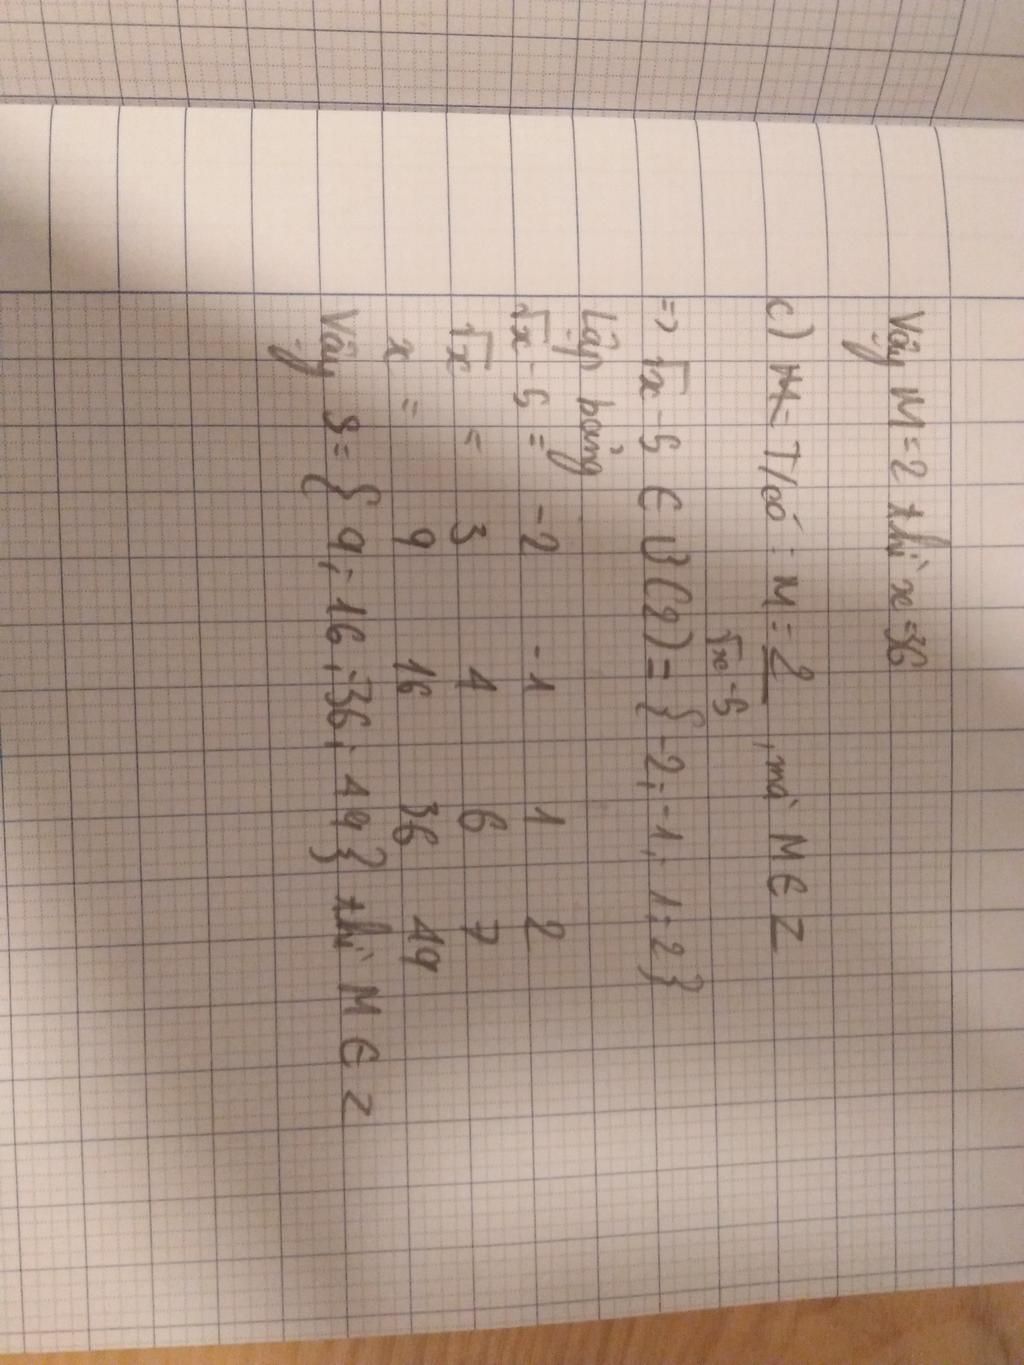 Vậy M=2 thì x=36
c) T/có : M = 2/(√x-5) , mà M ∈ Z
=> √x-5 ∈ Ư(2) = {-2; -1; 1; 2}
Lập bảng
√x-5 = -2 -1 1 2
√x = 3 4 6 7
x = 9 16 36 49
Vậy S={9; 16; 36; 49} thì M ∈ Z